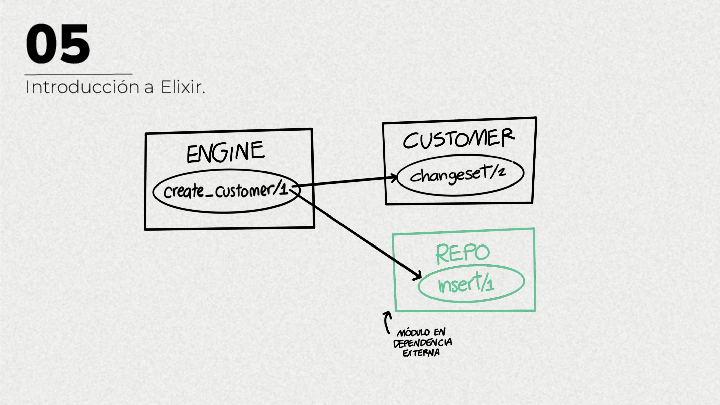 05
Introducción a Elixir.
ENGINE
create_customer/1
CUSTOMER
changeset/2
REPO
insert/1
MÓDULO EN
DEPENDENCIA
EXTERNA